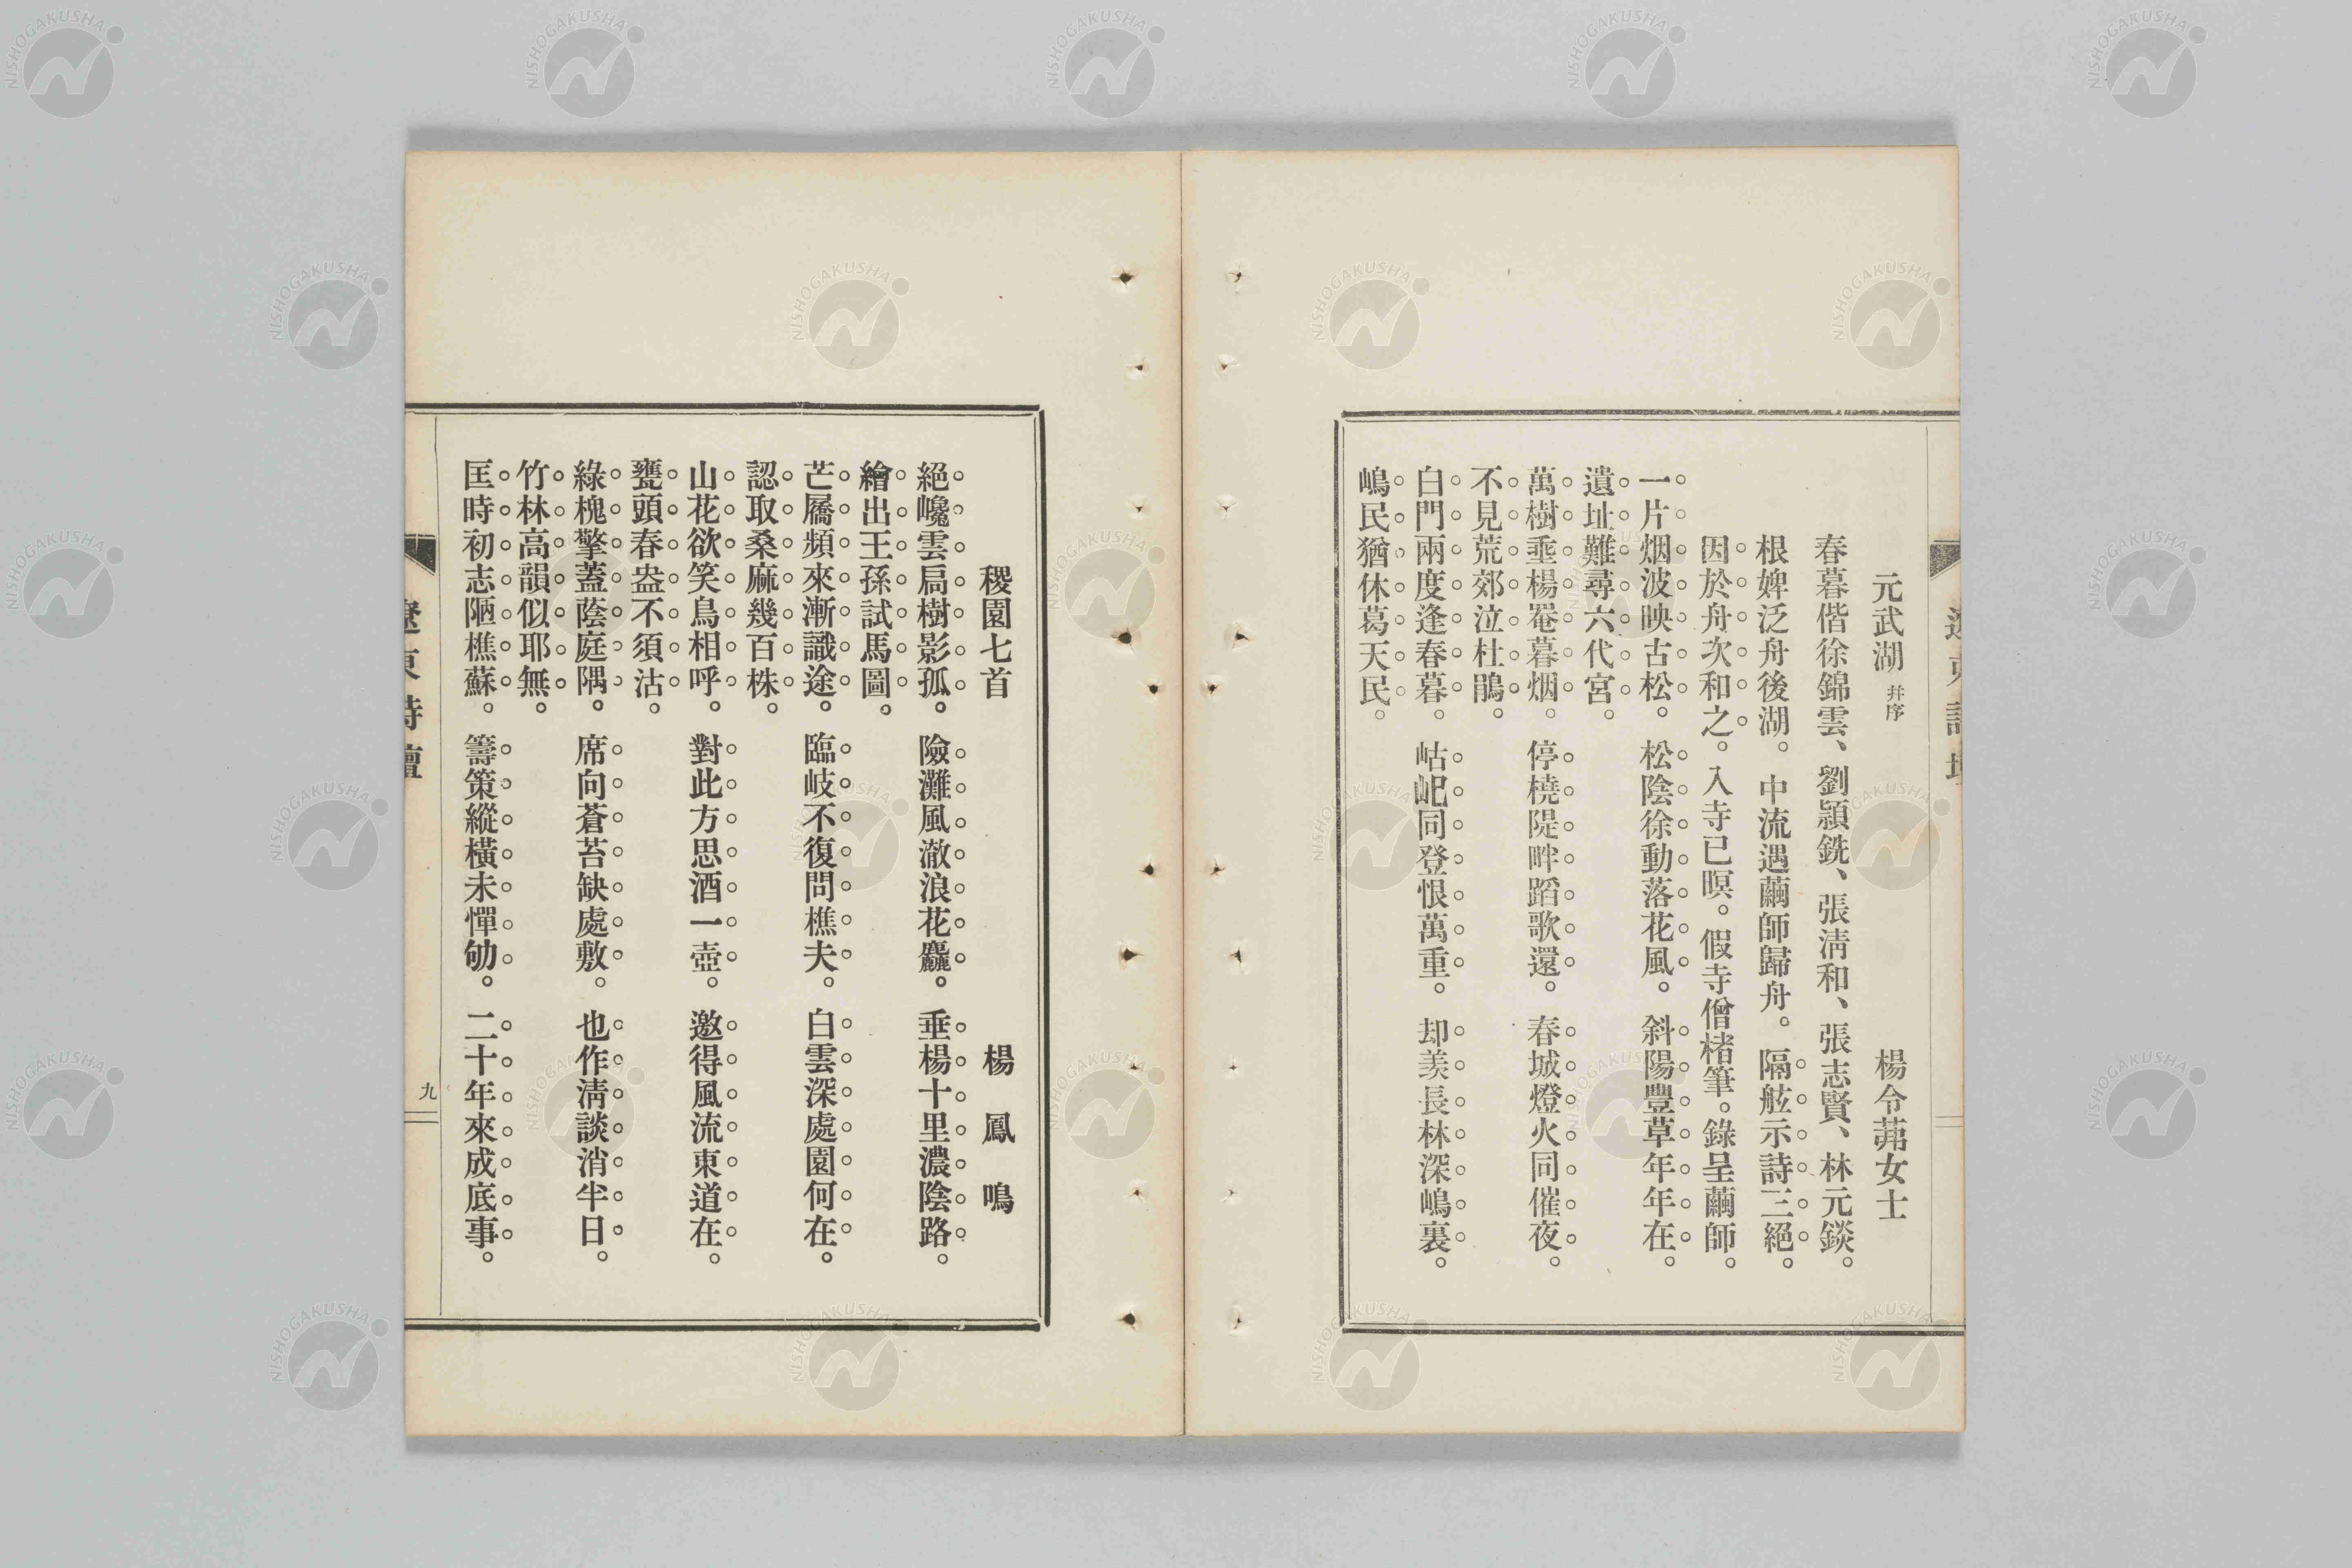 遼東詩壇
元武湖 幷序 楊令茀女士
春暮偕徐錦雲、劉頴銑、張淸和、張志賢、林元錟。
根婢泛舟後湖。中流遇繭師歸舟。隔舷示詩三絕。
因於舟次和之。入寺已暝。假寺僧楮筆。錄呈繭師。
一片烟波映古松。松陰徐動落花風。斜陽豐草年年在。
遺址難尋六代宮。
萬樹垂楊罨暮烟。停橈隄畔蹈歌還。春城燈火同催夜。
不見荒郊泣杜鵑。
白門兩度逢春暮。岵屺同登恨萬重。却羨長林深嶋裏。
嶋民猶休葛天民。
稷園七首 楊鳳鳴
絕巉雲扃樹影孤。險灘風激浪花麤。垂楊十里濃陰路。
繪出王孫試馬圖。
芒屩頻來漸識途。臨岐不復問樵夫。白雲深處園何在。
認取桑麻幾百株。
山花欲笑鳥相呼。對此方思酒一壺。邀得風流東道在。
甕頭春盎不須沽。
綠槐擎蓋蔭庭隅。席向蒼苔缺處敷。也作淸談消半日。
竹林高韻似耶無。
匡時初志陋樵蘇。籌策縱橫未憚劬。二十年來成底事。
遼東詩壇 九
NISHOGAKUSHA